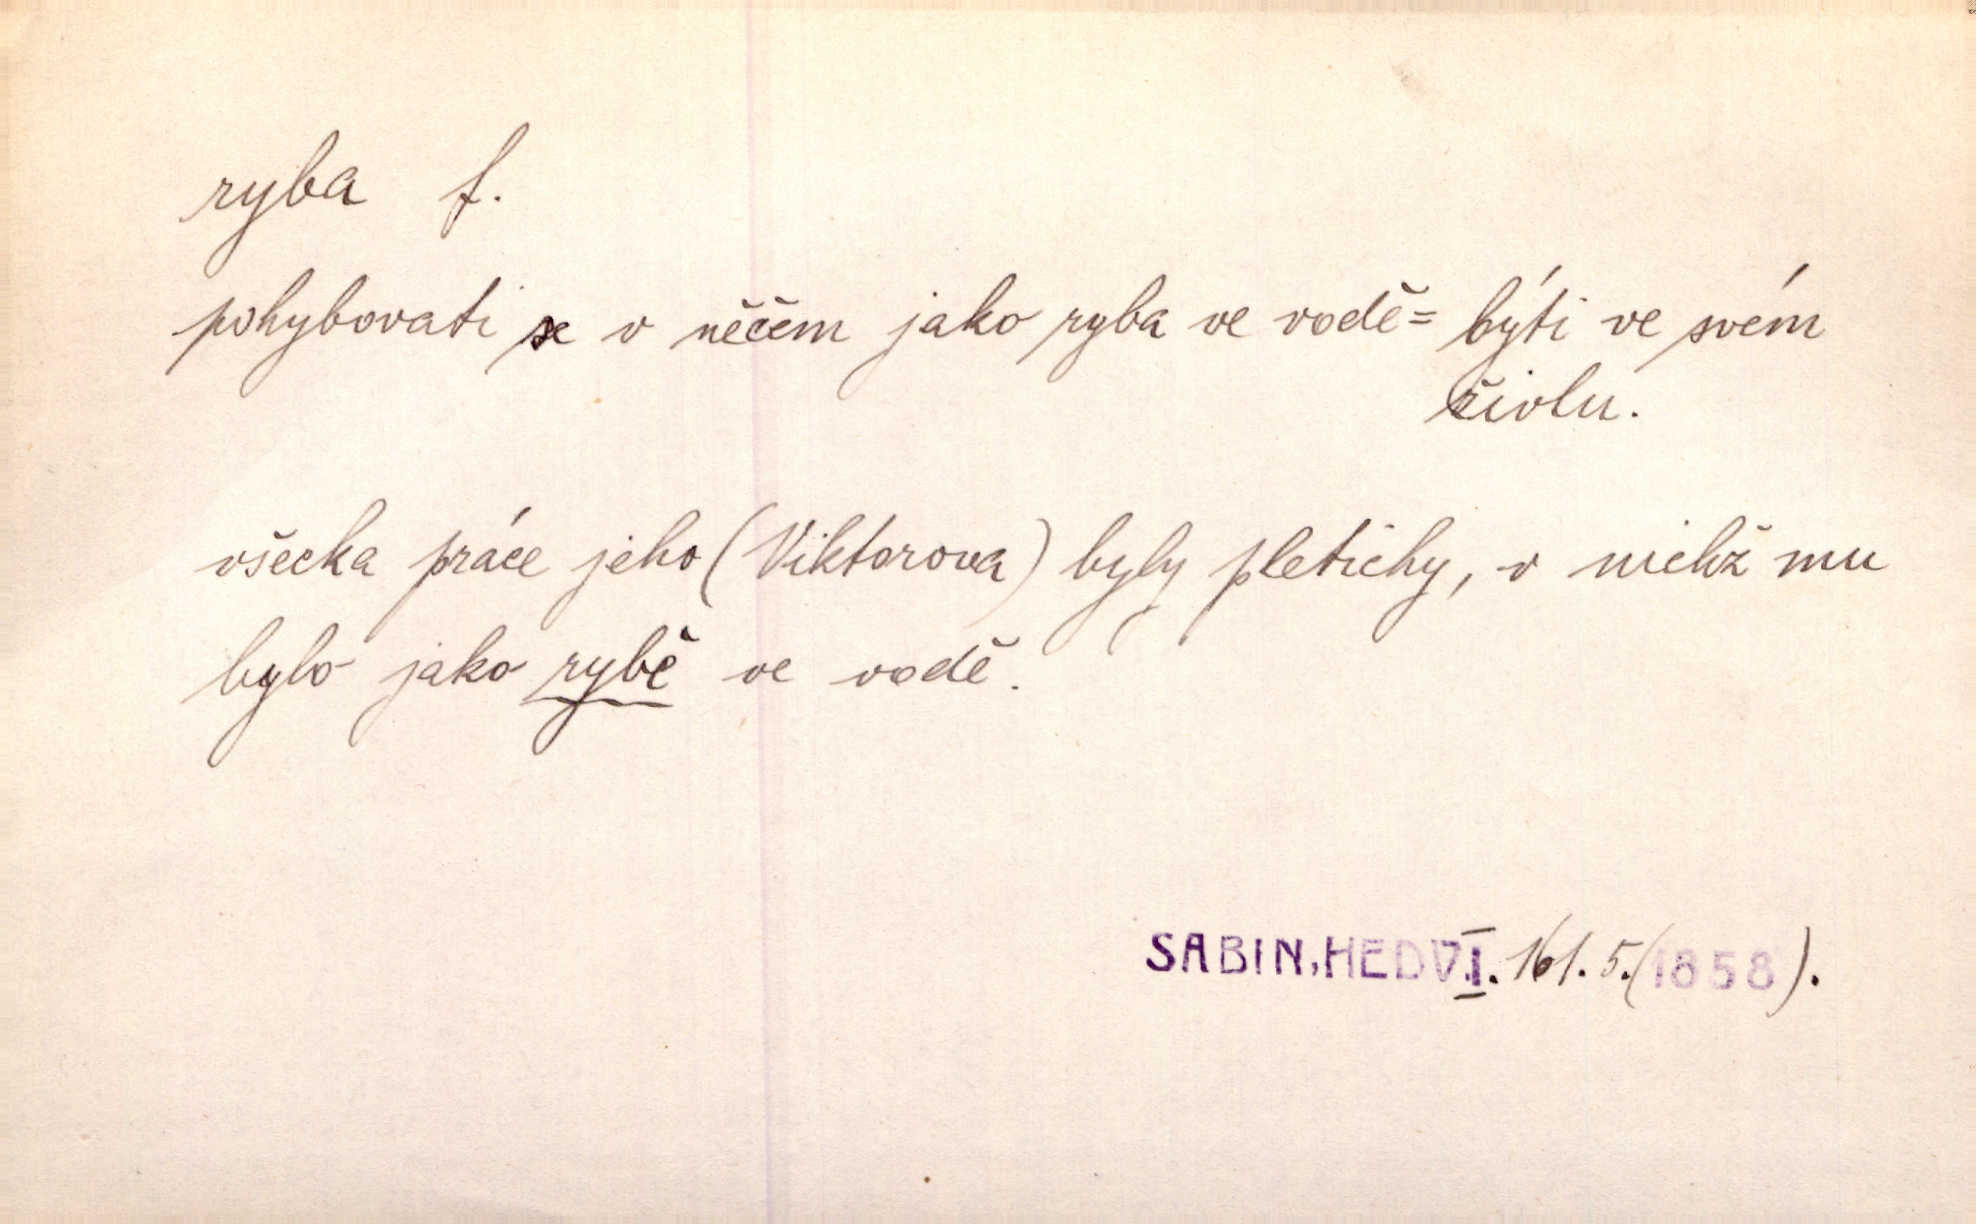 ryba f.
pohybovati se v něčem jako ryba ve vodě = býti ve svém
živlu.
všecka práce jeho (Viktorova) byly pletichy, v nichž mu
bylo jako rybě ve vodě.
SABIN, HEDV. I. 161. 5. (1858).